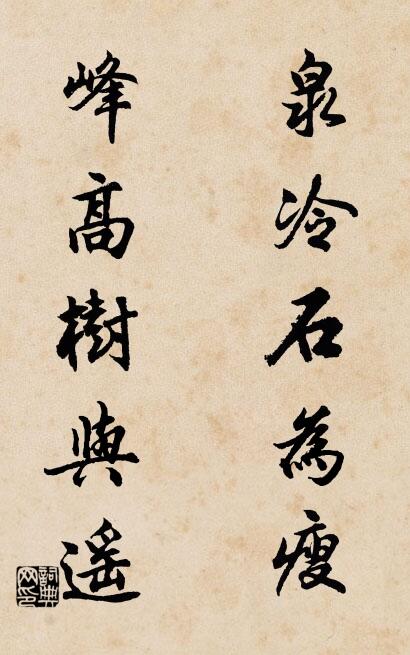 泉冷石為瘦
峰髙樹與遥
詞典网印